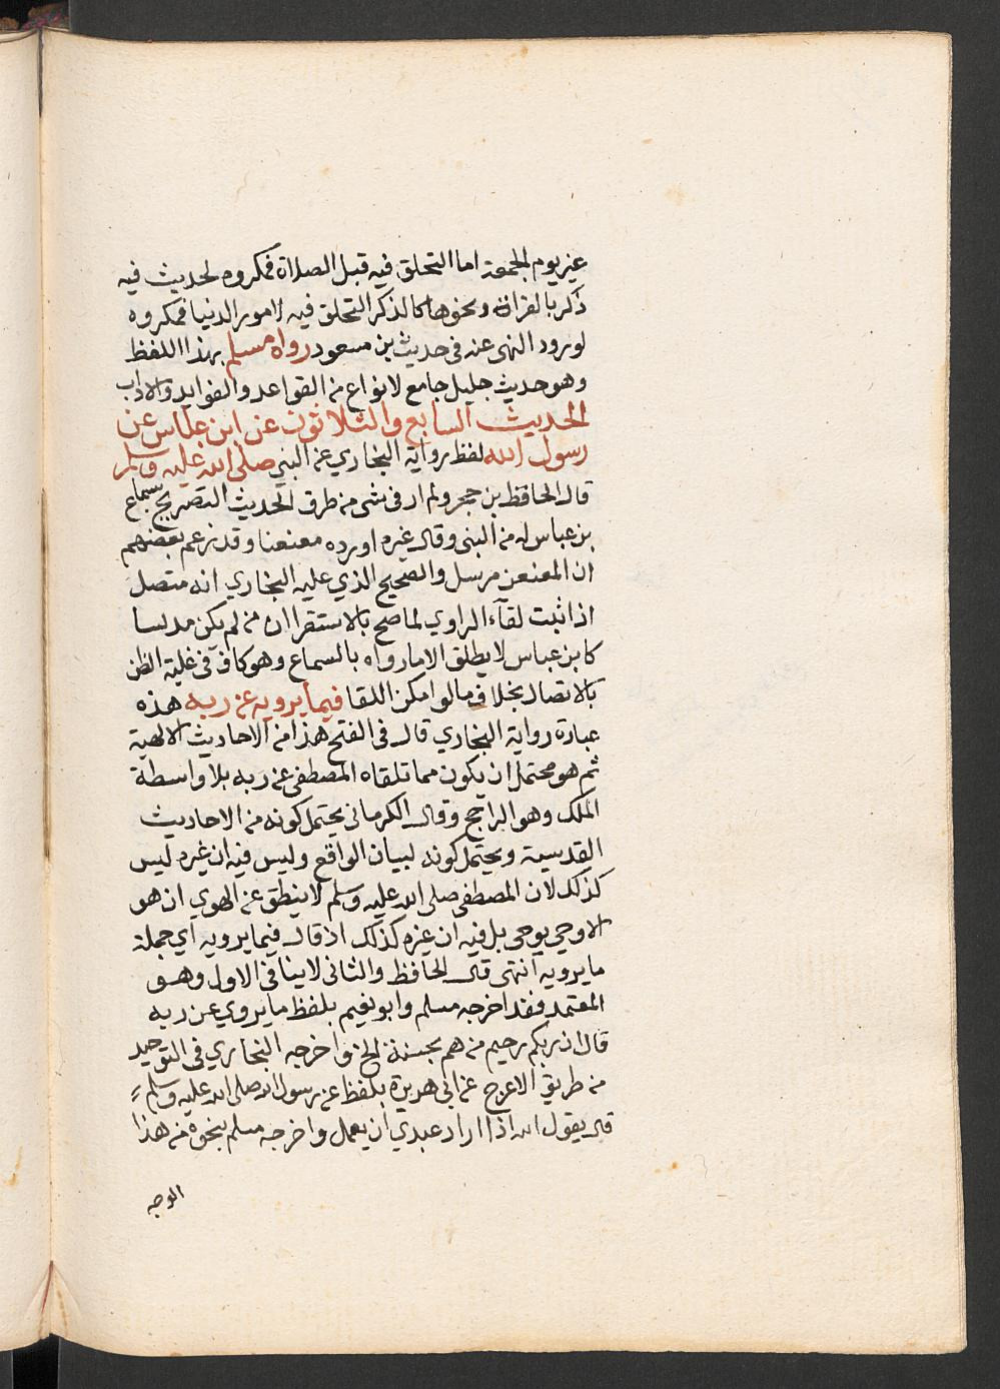 غير يوم الجمعة اما التحلق فيه قبل الصلاة فمكروه لحديث فيه
ذكر بالقراة ونحوها كالذكر التحلق فيه لامور الدنيا فمكروه
لورود النهى عنه فى حديث بن مسعود رواه مسلم بهذا اللفظ
وهو حديث جليل جامع لانواع من القواعد والفوايد والاداب
الحديث السابع والثلاثون عن ابن عباس عن
رسول الله لفظ رواية البخاري عن النبي صلى الله عليه وسلم
قال الحافظ بن حجر ولم ار فى شى من طرق الحديث التصريح بسماع
بن عباس له من النبى وقال غيره اورده معنعنا وقد زعم بعضهم
ان المعنعن مرسل والصحيح الذي عليه البخاري انه متصل
اذا ثبت لقآء الراوي لما صح بالاستقرا ان من لم يكن مدلسا
كابن عباس لا يطلق الا ما رواه بالسماع وهو كاف فى غلبة الظن
بالاتصال بخلاف ما لو امكن اللقا فيما يرويه عن ربه هذه
عبارة رواية البخاري قال فى الفتح هذا من الاحاديث الالهية
ثم هو محتمل ان يكون مما تلقاه المصطفى عن ربه بلا واسطة
الملك وهو الراجح وقال الكرمانى يحتمل كونه من الاحاديث
القدسية ويحتمل كونه لبيان الواقع وليس فيه ان غيره ليس
كذلك لان المصطفى صلى الله عليه وسلم لا ينطق عن الهوي ان هو
الا وحي يوحى بل فيه ان غيره كذلك اذ قال فيما يرويه اي جملة
ما يرويه انتهى قال الحافظ والثانى لا ينافى الاول وهو
المعتمد فقد اخرجه مسلم وابو نعيم بلفظ ما يروي عن ربه
قال ان ربكم رحيم من هم بحسنة الخ واخرجه البخاري فى التوحيد
من طريق الاعرج عن ابى هريرة بلفظ عن رسول الله صلى الله عليه وسلم
قال يقول الله اذا اراد عبدي ان يعمل واخرجه مسلم بنحوه من هذا
الوجه